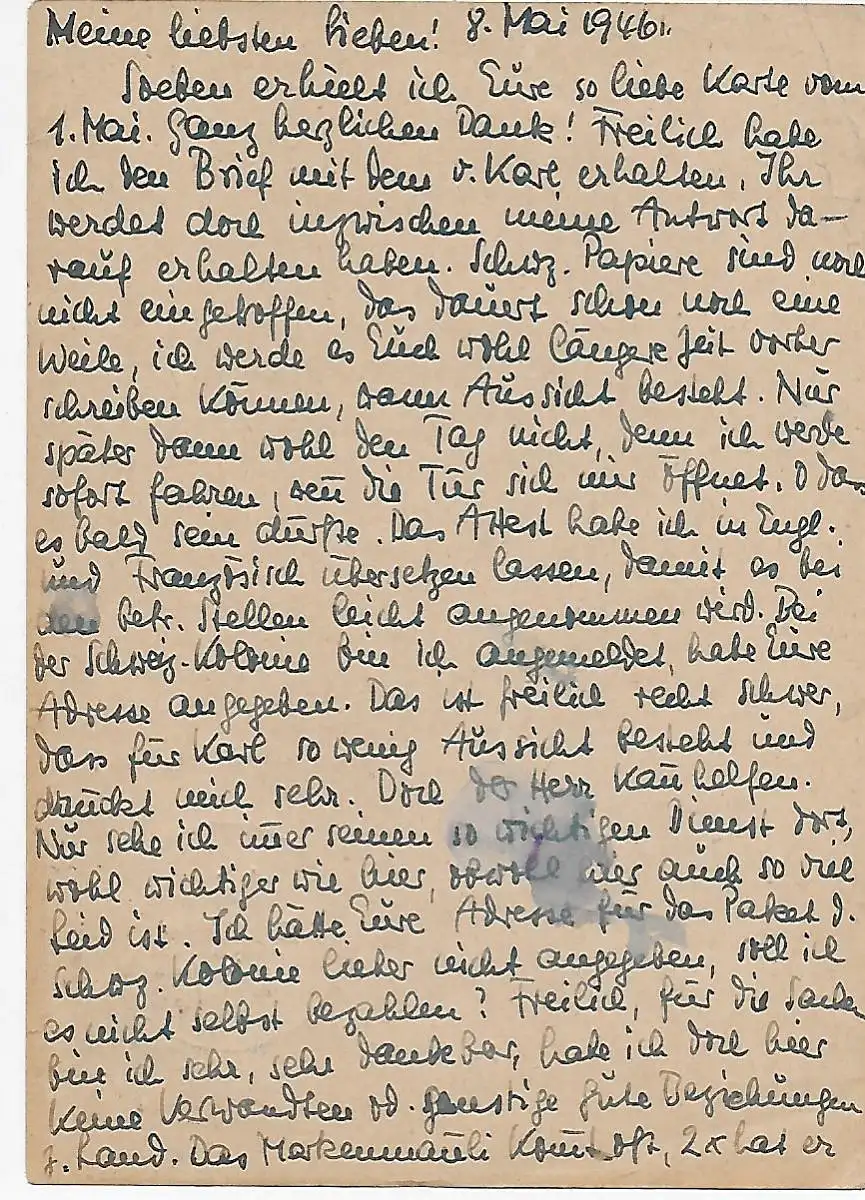 Meine liebsten Lieben! 8. Mai 1946.
Soeben erhielt ich Eure so liebe Karte vom
1. Mai. Ganz herzlichen Dank! Freilich habe
ich den Brief mit dem v. Karl erhalten, Ihr
werdet doch inzwischen meine Antwort da-
rauf erhalten haben. Schwz. Papiere sind noch
nicht eingetroffen, das dauert schon noch eine
Weile, ich werde es Euch wohl längere Zeit vorher
schreiben können, wann Aussicht besteht. Nur
später dann wohl den Tag nicht, denn ich werde
sofort fahren, wen̄ die Tür sich mir öffnet. O da
es bald sein dürfte. Das Attest habe ich in Engl.
und Französisch übersetzen lassen, damit es bei
den betr. Stellen leicht angenommen wird. Bei
der Schweiz. Kolonie bin ich angemeldet, habe Eure
Adresse angegeben. Das ist freilich recht schwer,
dass für Karl so wenig Aussicht besteht und
drückt mich sehr. Doch der Herr kan̄ helfen.
Nur sehe ich im̄er seinen so wichtigen Dienst dort,
wohl wichtiger wie hier, obwohl hier auch so viel
Leid ist. Ich hätte Eure Adresse für das Paket d.
Schwz. Kolonie lieber nicht angegeben, soll ich
es nicht selbst bezahlen? Freilich, für die Sachen
bin ich sehr, sehr dankbar, habe ich doch hier
keine Verwandten od. günstige gute Beziehungen
z. Land. Das Markenmäuli kom̄t oft, 2x hat er